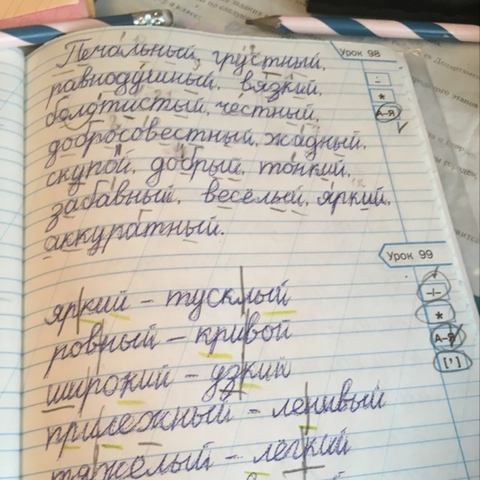 Урок 98
Печальный, грустный,
равнодушный, вязкий,
болотистый, честный,
А-Я
добросовестный, жадный,
скупой, добрый, тонкий,
забавный, весёлый, яркий,
аккуратный.
Урок 99
яркий – тусклый
ровный – кривой
А-Я
широкий – узкий
прилежный – ленивый
тяжёлый – лёгкий